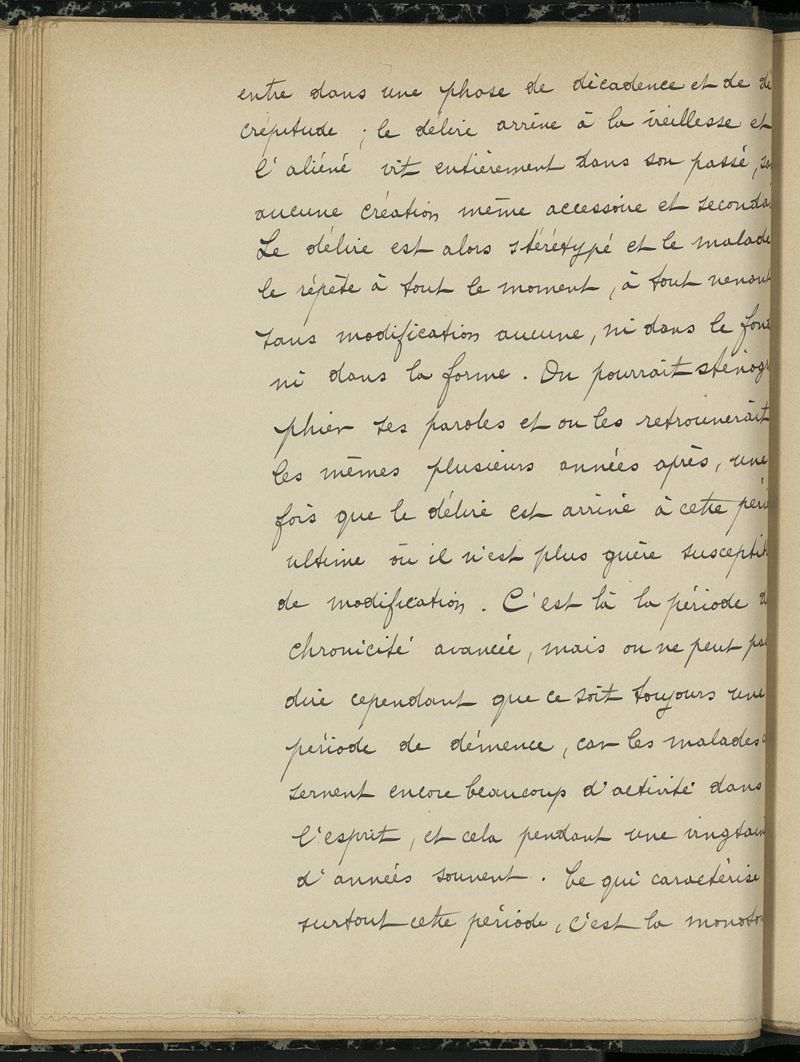 entre dans une phase de décadence et de dé
crépitude ; le délire arrive à la vieillesse et
l'aliéné vit entièrement dans son passé, sa
aucune création même accessoire et seconda
Le délire est alors stéréotypé et le malade
le répète à tout le moment, à tout venant
sans modification aucune, ni dans le fond
ni dans la forme. On pourrait sténogr
phier ses paroles et on les retrouverait
les mêmes plusieurs années après, une
fois que le délire est arrivé à cette péri
ultime où il n'est plus guère susceptib
de modification. C'est là la période d
chronicité avancée, mais on ne peut pas
dire cependant que ce soit toujours une
période de démence, car les malades c
servent encore beaucoup d'activité dans
l'esprit, et cela pendant une vingtain
d'années souvent. Ce qui caractérise
surtout cette période, c'est la monoto